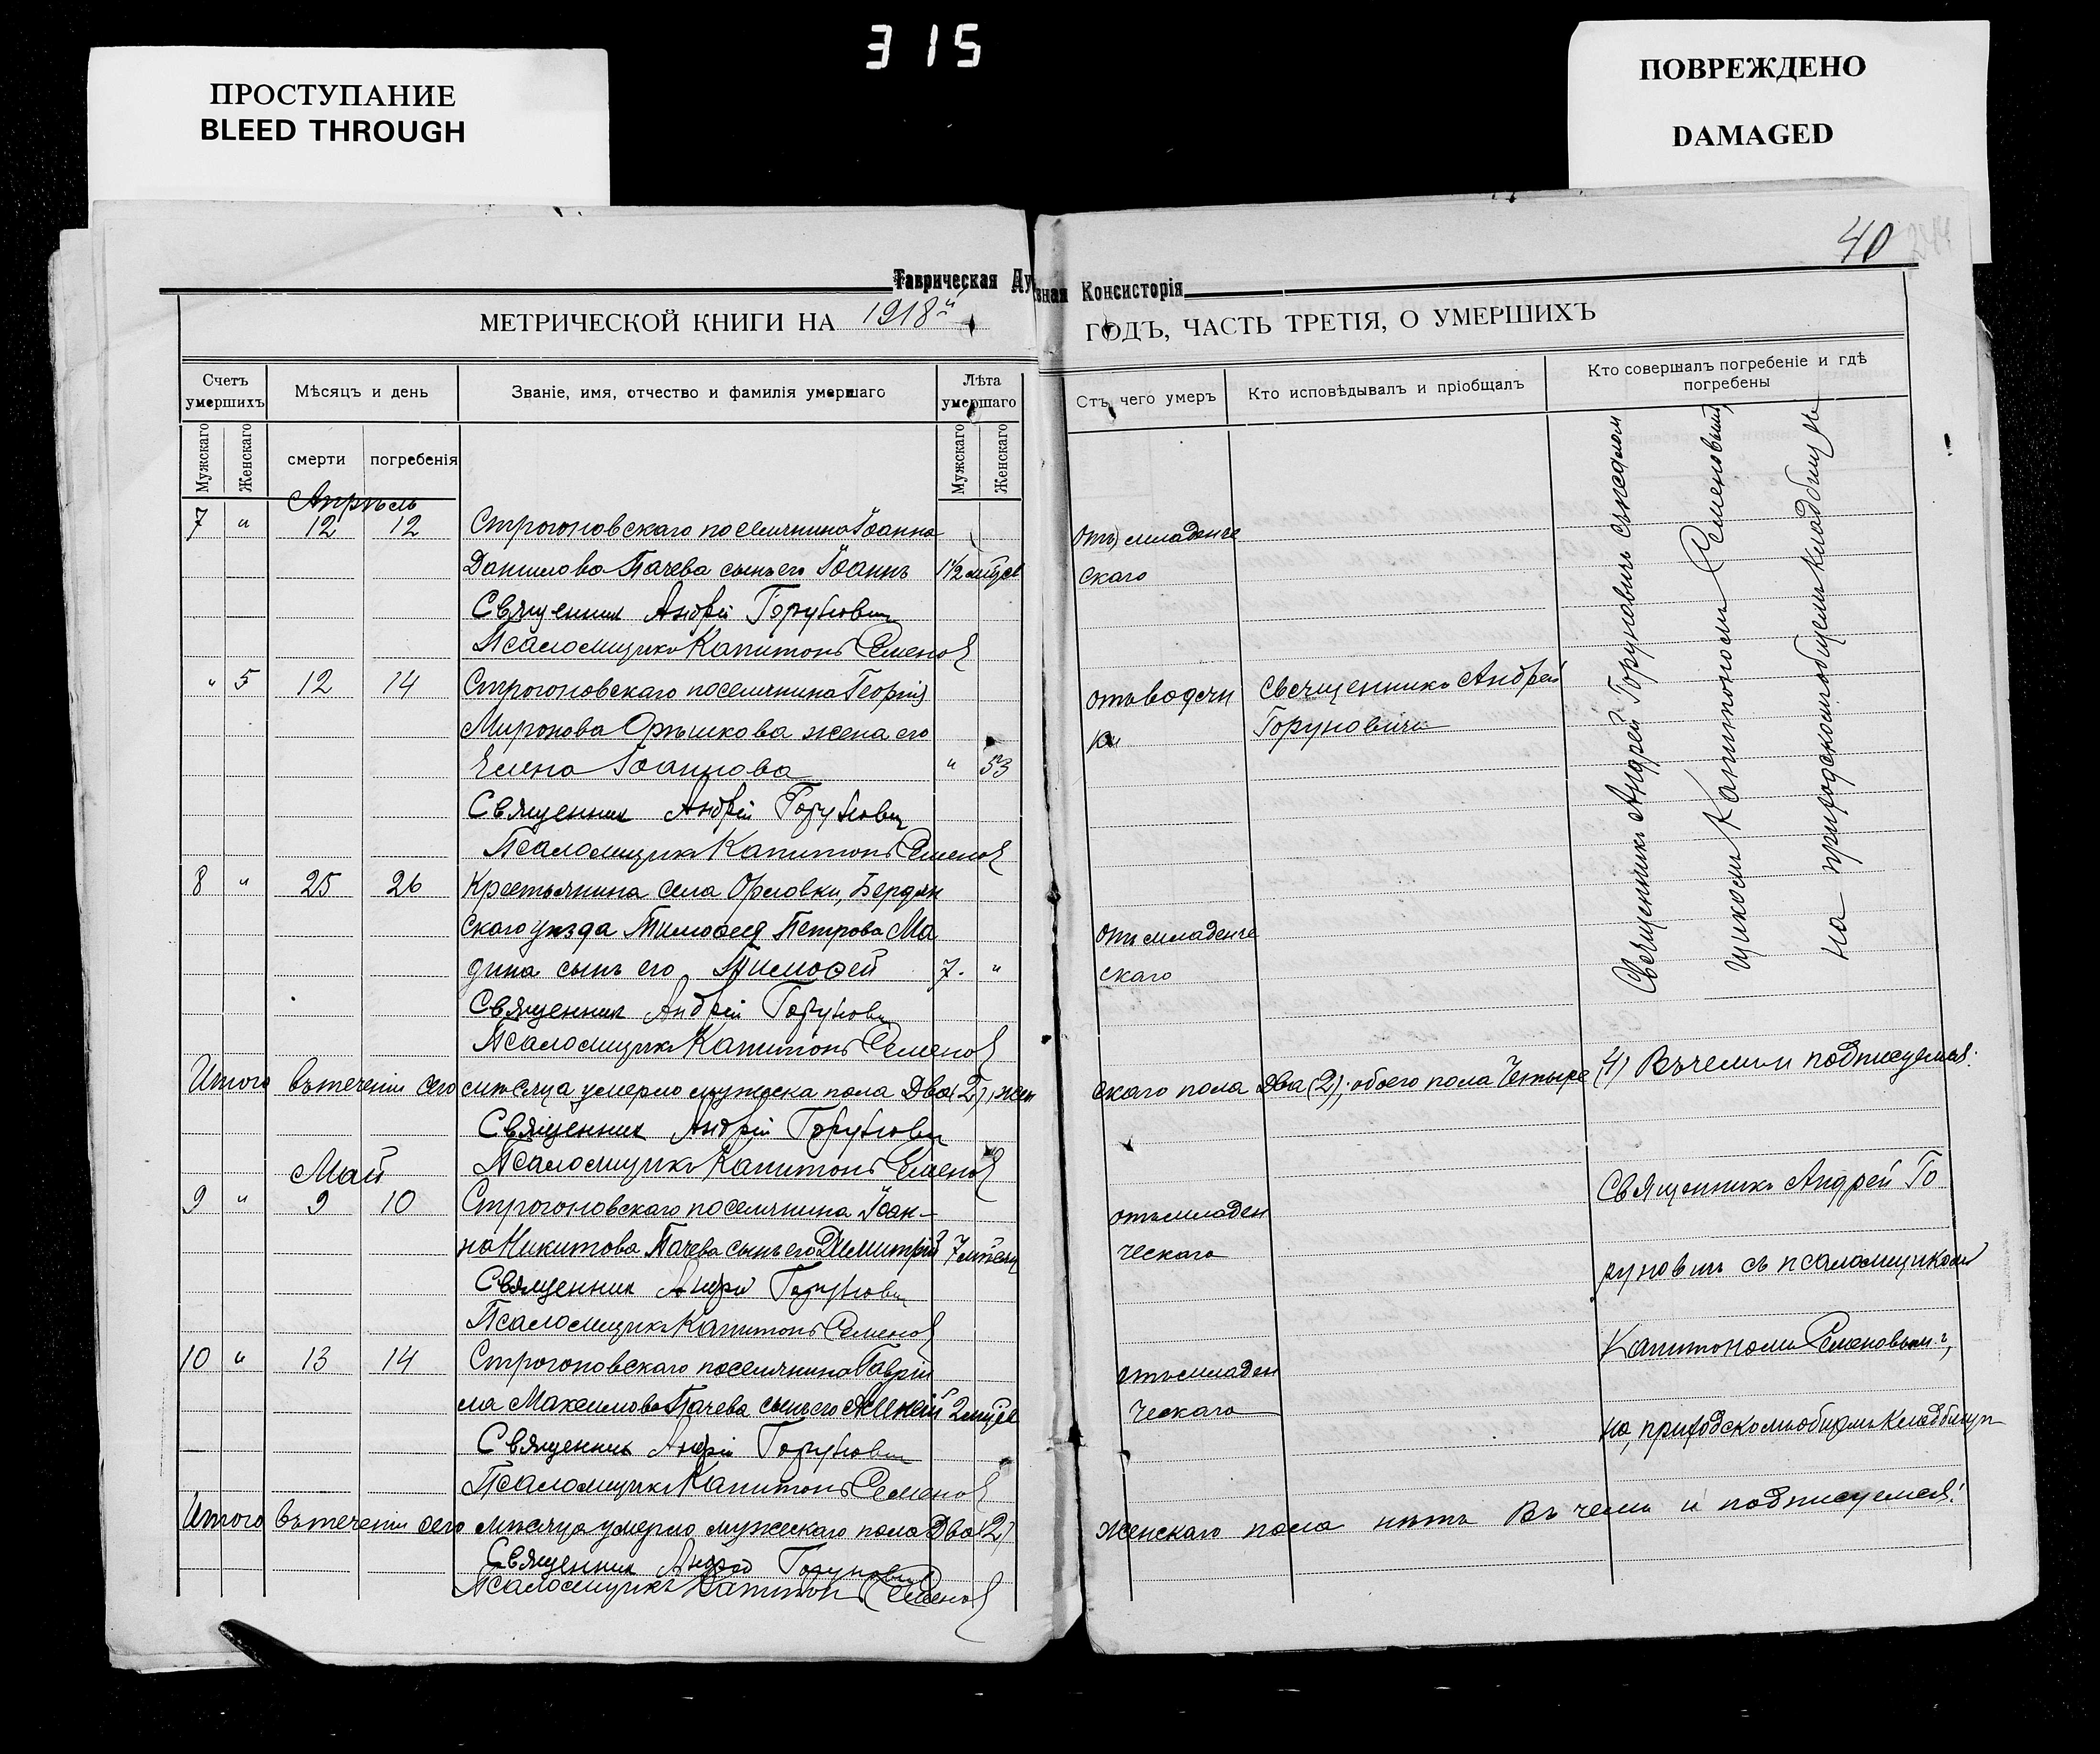 315
ПРОСТУПАНИЕ
BLEED THROUGH
ПОВРЕЖДЕНО
DAMAGED
40
Таврическая Ду
вная Консисторія
МЕТРИЧЕСКОЙ КНИГИ НА 1918й
ГОДЪ, ЧАСТЬ ТРЕТІЯ, О УМЕРШИХЪ
Счетъ умершихъ
Мѣсяцъ и день
Званіе, имя, отчество и фамилія умершаго
Лѣта умершаго
Мужскаго
Женскаго
смерти
погребенія
Мужскаго
Женскаго
Апрѣль
7 " 12 12 Строгоновскаго поселянина Іоанна
Данилова Пачева сынъ его Іоаннъ 1½
Священник Андрей Горунович
Псаломщикъ Капитонъ Семенов
" 5 12 14 Строгоновскаго поселянина Георгія
Миронова Орѣшкова жена его
Елена Іоаннова " 53
Священник Андрей Горунович
Псаломщикъ Капитонъ Семенов
8 " 25 26 Крестьянина села Орловки, Бердян
скаго уѣзда Тимоѳея Петрова Ма
дина сынъ его Тимоѳей 7. "
Священник Андрей Горунович
Псаломщикъ Капитонъ Семенов
Итого въ теченіи сего мѣсяца умерло мужеска пола Два (2), жен
Священник Андрей Горунович
Псаломщикъ Капитонъ Семенов
Май
9 " 9 10 Строгоновскаго поселянина Іоан-
на Никитова Пачева сынъ его Димитрій 7 мѣсяц
Священник Андрей Горунович
Псаломщикъ Капитонъ Семенов
10 " 13 14 Строгоновскаго поселянина Гаврій
ла Максимова Пачева сынъ его Алексій 2
Священник Андрей Горунович
Псаломщикъ Капитонъ Семенов
Итого въ теченіи сего мѣсяца умерло мужескаго пола Два (2)
Священник Андрей Горунович
Псаломщикъ Капитонъ Семенов
Отъ чего умеръ
Кто исповѣдывалъ и пріобщалъ
Кто совершалъ погребеніе и гдѣ погребены
отъ младенче
скаго
отъ водян
ки
Священникъ Андрей
Горуновичъ
отъ младенче
скаго
Священникъ Андрей Горуновичъ съ псалом
щикомъ Капитономъ Семеновымъ,
на приходскомъ общемъ кладбищѣ
скаго пола Два (2); обоего пола Четыре (4) Въ чемъ и подписуемся:
отъ младен
ческаго
Священникъ Андрей Го
руновичъ съ псаломщикомъ
Капитономъ Семеновымъ,
на приходскомъ общемъ кладбищѣ
отъ младен
ческаго
женскаго пола нѣтъ Въ чемъ и подписуемся: